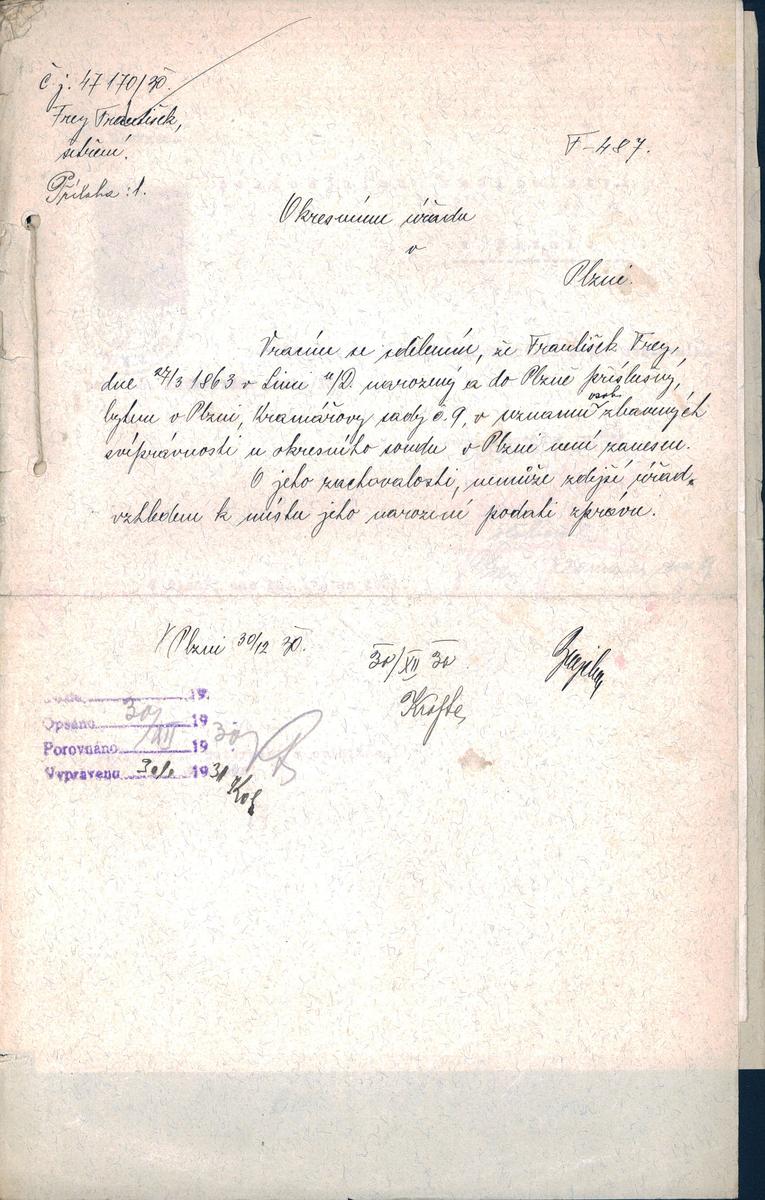 Č. j. 47 170/30.
Frey František,
šetření.
Příloha: 1.
F-487.
Okresnímu úřadu
v
Plzni.
Vracím se sdělením, že František Frey,
dne 27/3 1863 v Linci n/D. narozený a do Plzně příslušný,
bytem v Plzni, Kramářovy sady č. 9, v seznamu osob zbavených
svéprávnosti u okresního soudu v Plzni není zanesen.
O jeho zachovalosti, nemůže zdejší úřad
vzhledem k místu jeho narození podati zprávu.
V Plzni 30/12 30.
30/XII 30
19
Opsáno 30/XII 19 30
Porovnáno 19
Vypraveno 19 31